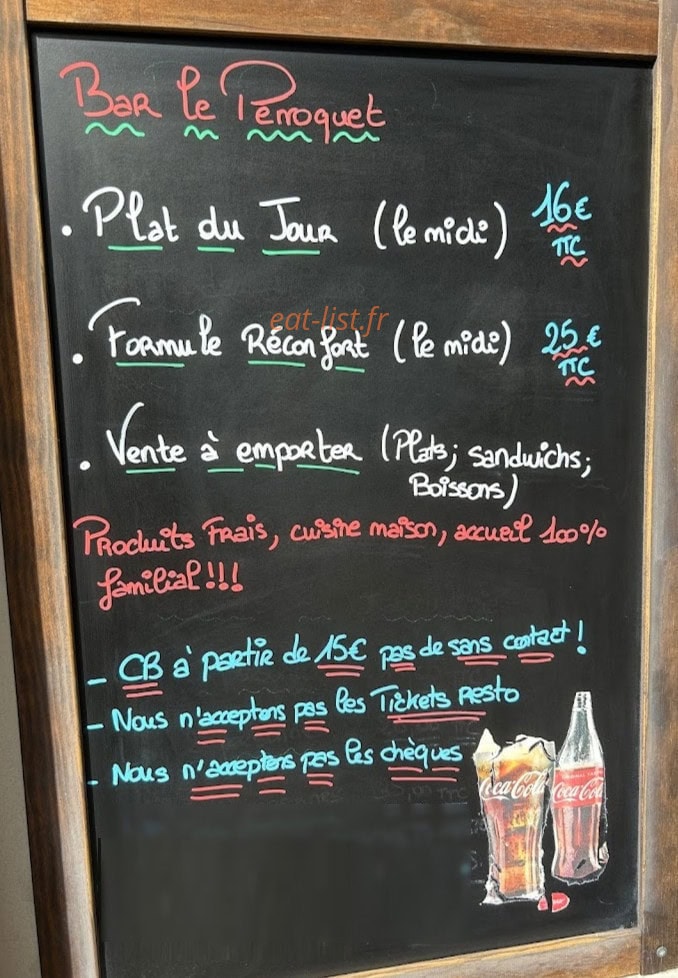 Bar le Perroquet
. Plat du Jour (le midi) 16€
TTC
eat-list.fr
. Formule Réconfort (le midi) 25€
TTC
. Vente à emporter (Plats; sandwichs;
Boissons)
Produits Frais, cuisine maison, accueil 100%
familial!!!
- CB à partir de 15€ pas de sans contact!
- Nous n'acceptons pas les Tickets Resto
- Nous n'acceptons pas les chèques
Coca-Cola Coca-Cola